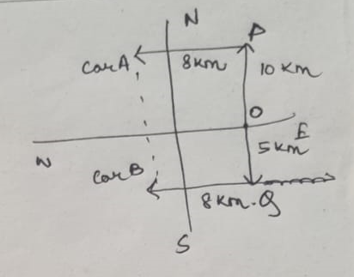 N
P
car A
8km
10 km
O
E
N
5 km
car B
8km.
Q
S